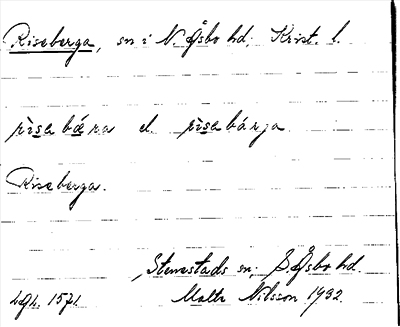 Riseberga, sn i N Åsbo hd, Krist. l.
rìsabæra el. rìsabárja
Riseberga.
Stenestads sn, S. Åsbo hd.
Malte Nilsson 1932